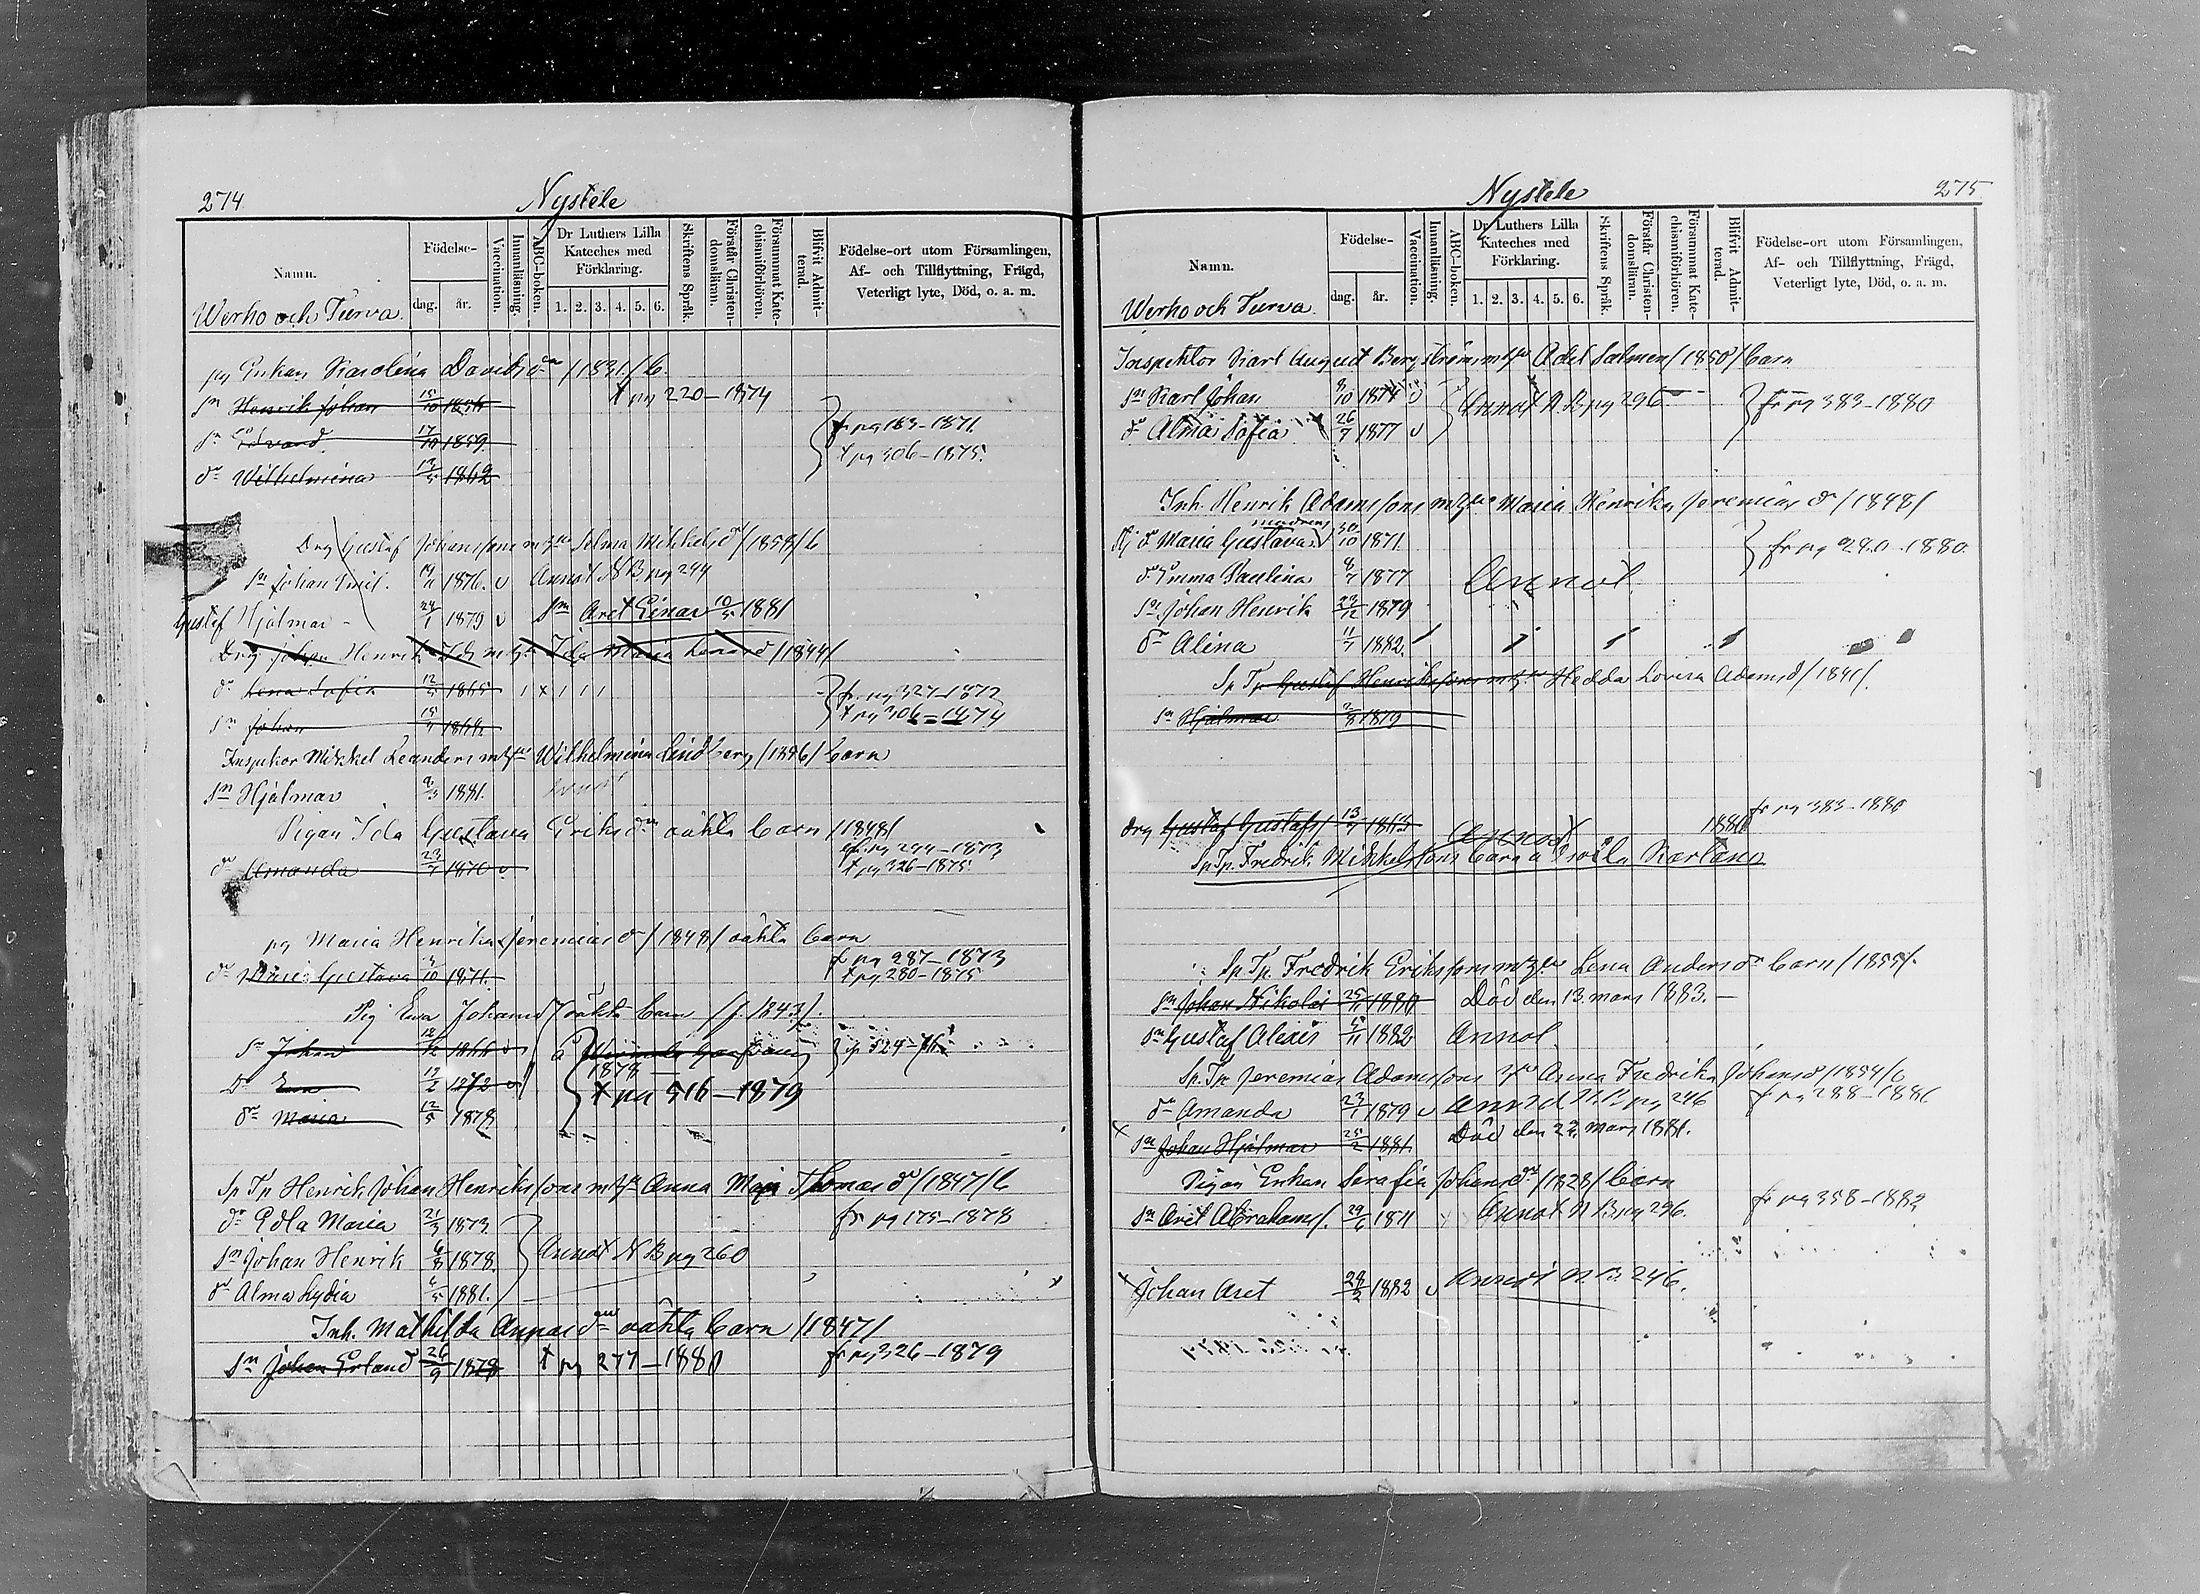 274
Nystele
Namn.
Födelse-
dag.
år.
Vaccination.
Innanläsning.
ABC-boken.
Dr Luthers Lilla Kateches med Förklaring.
1. 2. 3. 4. 5. 6.
Skriftens Språk.
Förstår Christen-domsläran.
Försummat Kate-chismiförhören.
Blifvit Admit-terad.
Födelse-ort utom Församlingen, Af- och Tillflyttning, Frägd, Veterligt lyte, Död, o. a. m.
Werho och Turva.
Enkan Karolina Davids dr /1831/ b.
sn Henrik Johan 15/10
t pg 220-1874
sn Edvard 17/10 1859.
fr pg 183-1871
dr Wilhelmina 1862
t pg 306-1875.
Drg Gustaf Johanssons m h Selma Mikkels d /1858/ b
sn Johan Emil. 1876. v Annot N B pg 244
Gustaf Hjalmar 24/1 1879 v sn Axel Einar 10/5 1881
Drg Johan Henrik Ida Maria /1844/
dr Lena Sofia 12/5 1865
fr pg 327-1872
sn Johan
t pg 306-1874
Inspektor Mikkel Leanders m h Wilhelmina Lindberg /1846/ barn
sn Hjalmar 1881.
Pigan Ida Gustava Eriks dr oäkta barn /1848/
fr pg 244-1873
dr Amanda 23/7 1870 v.
t pg 326-1875
pg Maria Henrika Jeremias d /1848/ oäkta barn
fr pg 287-1873
dr Maria Gustava 1871.
t pg 280-1875
Pig Eva Johans d oäkta barn /f. 1843/.
sn Johan
1878
dr Eva 1872 v
t pg 516-1879
dr Maria 12/5 1878
Sp Tp Henrik Johan Henrikssons m h Anna Maja Thomas d /1847/ b
dr Edla Maria 21/3 1873.
fr pg 175-1878
sn Johan Henrik 6/8 1878.
Annot N B pg 260
dr Alma Lydia 1881.
Inh. Mathilda Annas dr oäkta barn /1847/
sn Johan Erland 26/9 1878 t pg 277-1880 fr pg 326-1879
Nystele
275
Namn.
Födelse-
dag.
år.
Vaccination.
Innanläsning.
ABC-boken.
Dr Luthers Lilla Kateches med Förklaring.
1. 2. 3. 4. 5. 6.
Skriftens Språk.
Förstår Christen-domsläran.
Försummat Kate-chismiförhören.
Blifvit Admit-terad.
Födelse-ort utom Församlingen, Af- och Tillflyttning, Frägd, Veterligt lyte, Död, o. a. m.
Werho och Turva.
Inspektor Karl August Bergströms m h Adel Salmen /1850/ barn
sn Karl Johan 8/10 1874 v
Annot N. B. pg 296
fr pg 383-1880
dr Alma Sofia 26/7 1877 v
Inh. Henrik Adamssons m h Maria Henrika Jeremias dr /1848/
dr Maria Gustava 30/10 1871.
fr pg 280-1880.
dr Emma Paulina 8/7 1877
Annot.
sn Johan Henrik 23/12 1879
dr Alina 11/7 1882.
Sp Tp Gustaf Henrikssons m h Hedda Lovisa Adams d /1841/.
sn Hjalmar 1879
fr pg 383-1880
drg Gustaf Gustafs 13/7 1863
Annot
Sp. Tp. Fredrik Mikkelssons barn
Sp Tp. Fredrik Erikssons m h Lena Anders dr barn /1855/.
sn Johan Nikolai 25/11 1880 Död den 13. mars 1883.
sn Gustaf Alexis 1882 Annot.
Sp. Tp Jeremias Adamssons h Anna Fredrika Johans d /1854/ b
dr Amanda 23/1 1879 v Annot N. B pg 246
fr pg 288-1881
sn Johan Hjalmar 25/2 1881. Död den 22. mars 1881.
Pigan Enkan Serafia Johans dr /1828/ barn
fr pg 358-1882
sn Axel Abrahams/. 29/6 1871 Annot N B pg 296.
Johan Axel 28/2 1882 v Annot N. B. 246.